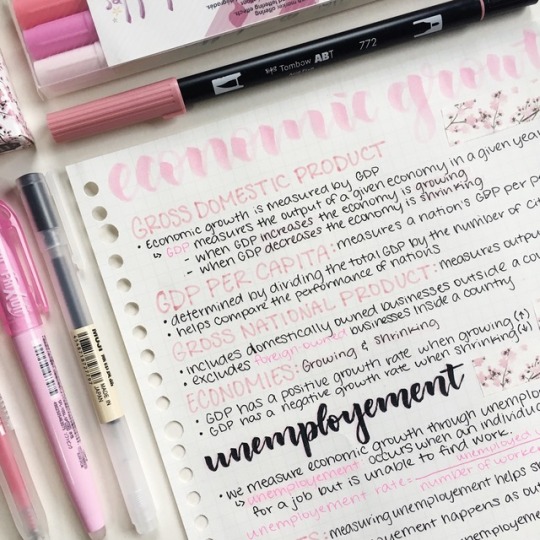 Tombow ABT 772
economic growt
GROSS DOMESTIC PRODUCT
• Economic growth is measured by GDP
↳ GDP measures the output of a given economy in a given year
- when GDP increases the economy is growing
- when GDP decreases the economy is shrinking
GDP PER CAPITA: measures a nation's GDP per pe
• determined by dividing the total GDP by the number of cit
• helps compare the performance of nations
GROSS NATIONAL PRODUCT: measures outpu
• includes domestically owned businesses outside a cou
• excludes foreign owned businesses inside a country
ECONOMIES: Growing & shrinking
• GDP has a positive growth rate when growing (↑)
• GDP has a negative growth rate when shrinking (↓)
unemployement
• we measure economic growth through unemploy
↳ unemployement occurs when an individua
for a job but is unable to find work.
unemployement rates: unemployed
number of worker
: measuring unemployement helps s
oyement happens as out
MADE IN
JAPAN